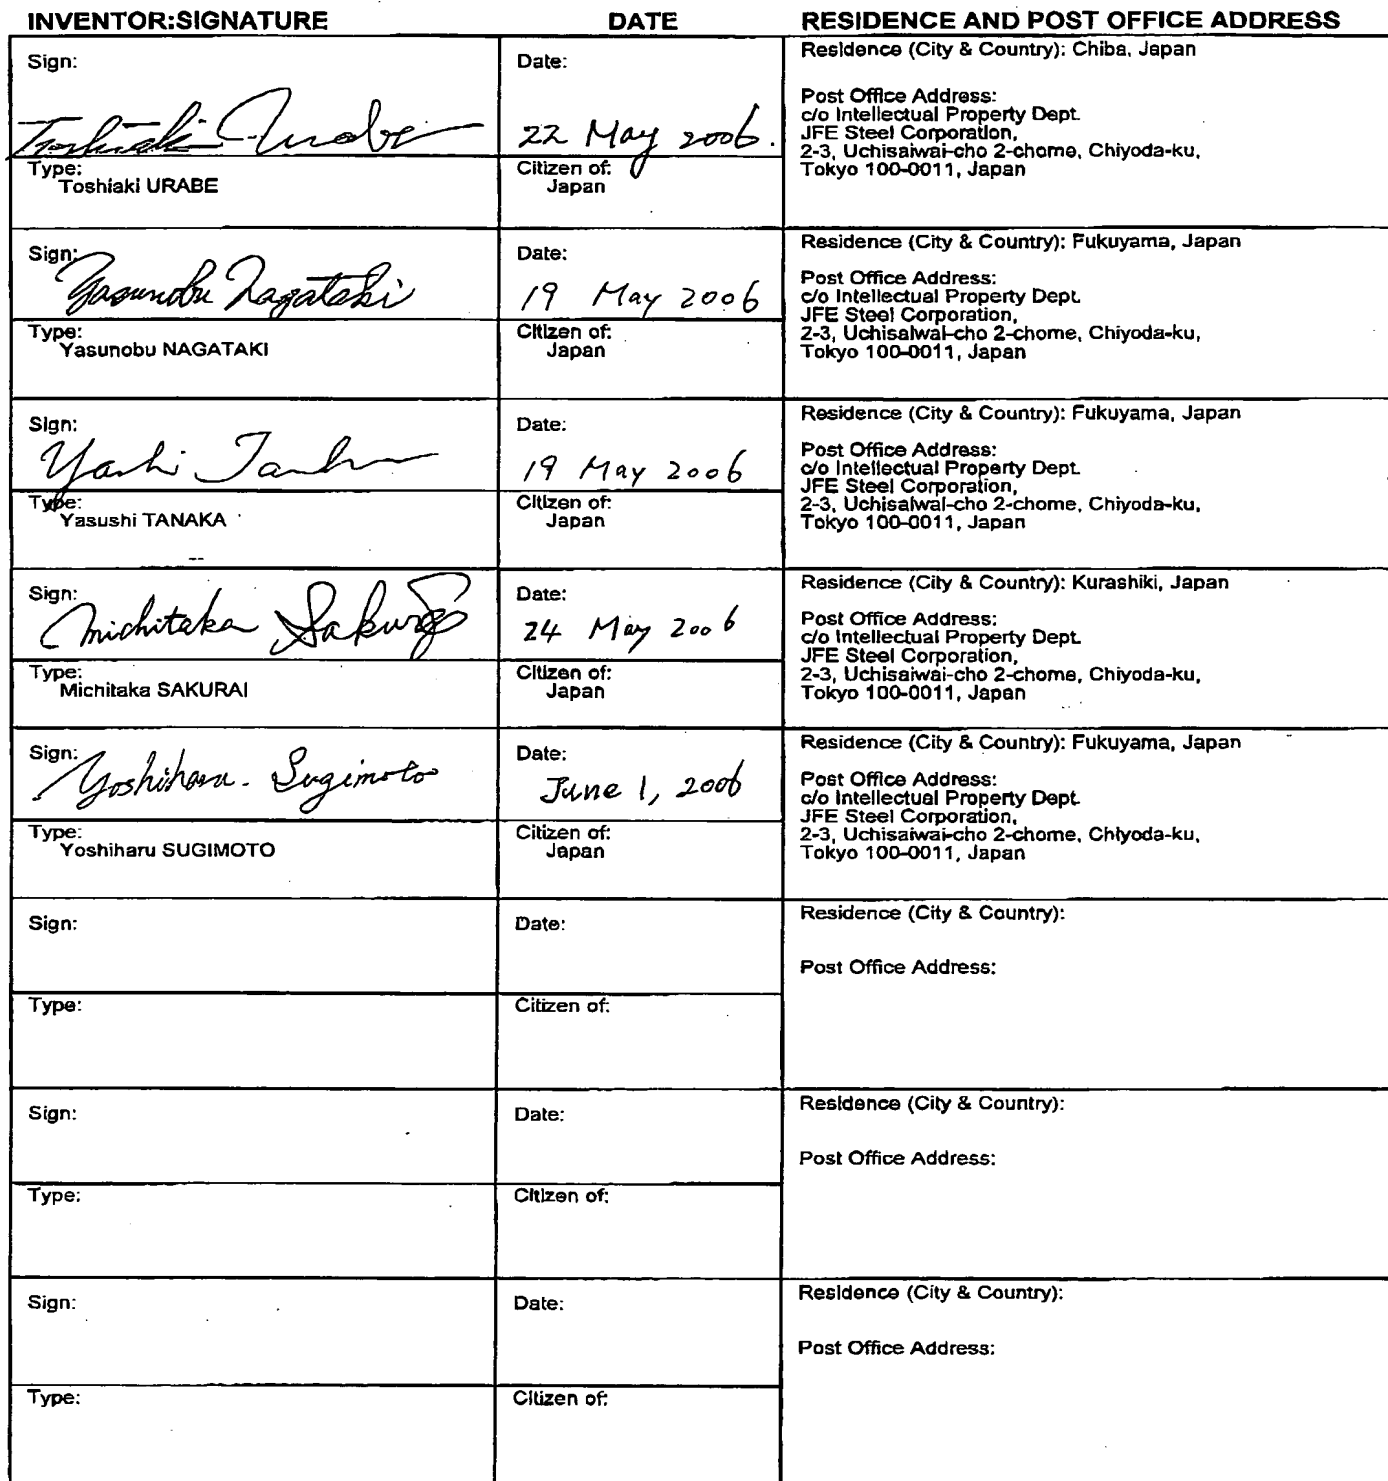 INVENTOR:SIGNATURE DATE RESIDENCE AND POST OFFICE ADDRESS
Sign:
Toshiaki Urabe
Type:
Toshiaki URABE
Date:
22 May 2006.
Citizen of:
Japan
Residence (City & Country): Chiba, Japan
Post Office Address:
c/o Intellectual Property Dept.
JFE Steel Corporation,
2-3, Uchisaiwai-cho 2-chome, Chiyoda-ku,
Tokyo 100-0011, Japan
Sign:
Yasunobu Nagataki
Type:
Yasunobu NAGATAKI
Date:
19 May 2006
Citizen of:
Japan
Residence (City & Country): Fukuyama, Japan
Post Office Address:
c/o Intellectual Property Dept.
JFE Steel Corporation,
2-3, Uchisaiwai-cho 2-chome, Chiyoda-ku,
Tokyo 100-0011, Japan
Sign:
Type:
Yasushi TANAKA
Date:
19 May 2006
Citizen of:
Japan
Residence (City & Country): Fukuyama, Japan
Post Office Address:
c/o Intellectual Property Dept.
JFE Steel Corporation,
2-3, Uchisaiwai-cho 2-chome, Chiyoda-ku,
Tokyo 100-0011, Japan
Sign:
Michitaka Sakurai
Type:
Michitaka SAKURAI
Date:
24 May 2006
Citizen of:
Japan
Residence (City & Country): Kurashiki, Japan
Post Office Address:
c/o Intellectual Property Dept.
JFE Steel Corporation,
2-3, Uchisaiwai-cho 2-chome, Chiyoda-ku,
Tokyo 100-0011, Japan
Sign:
Yoshiharu. Sugimoto
Type:
Yoshiharu SUGIMOTO
Date:
June 1, 2006
Citizen of:
Japan
Residence (City & Country): Fukuyama, Japan
Post Office Address:
c/o Intellectual Property Dept.
JFE Steel Corporation,
2-3, Uchisaiwai-cho 2-chome, Chiyoda-ku,
Tokyo 100-0011, Japan
Sign:
Type:
Date:
Citizen of:
Residence (City & Country):
Post Office Address:
Sign:
Type:
Date:
Citizen of:
Residence (City & Country):
Post Office Address:
Sign:
Type:
Date:
Citizen of:
Residence (City & Country):
Post Office Address: